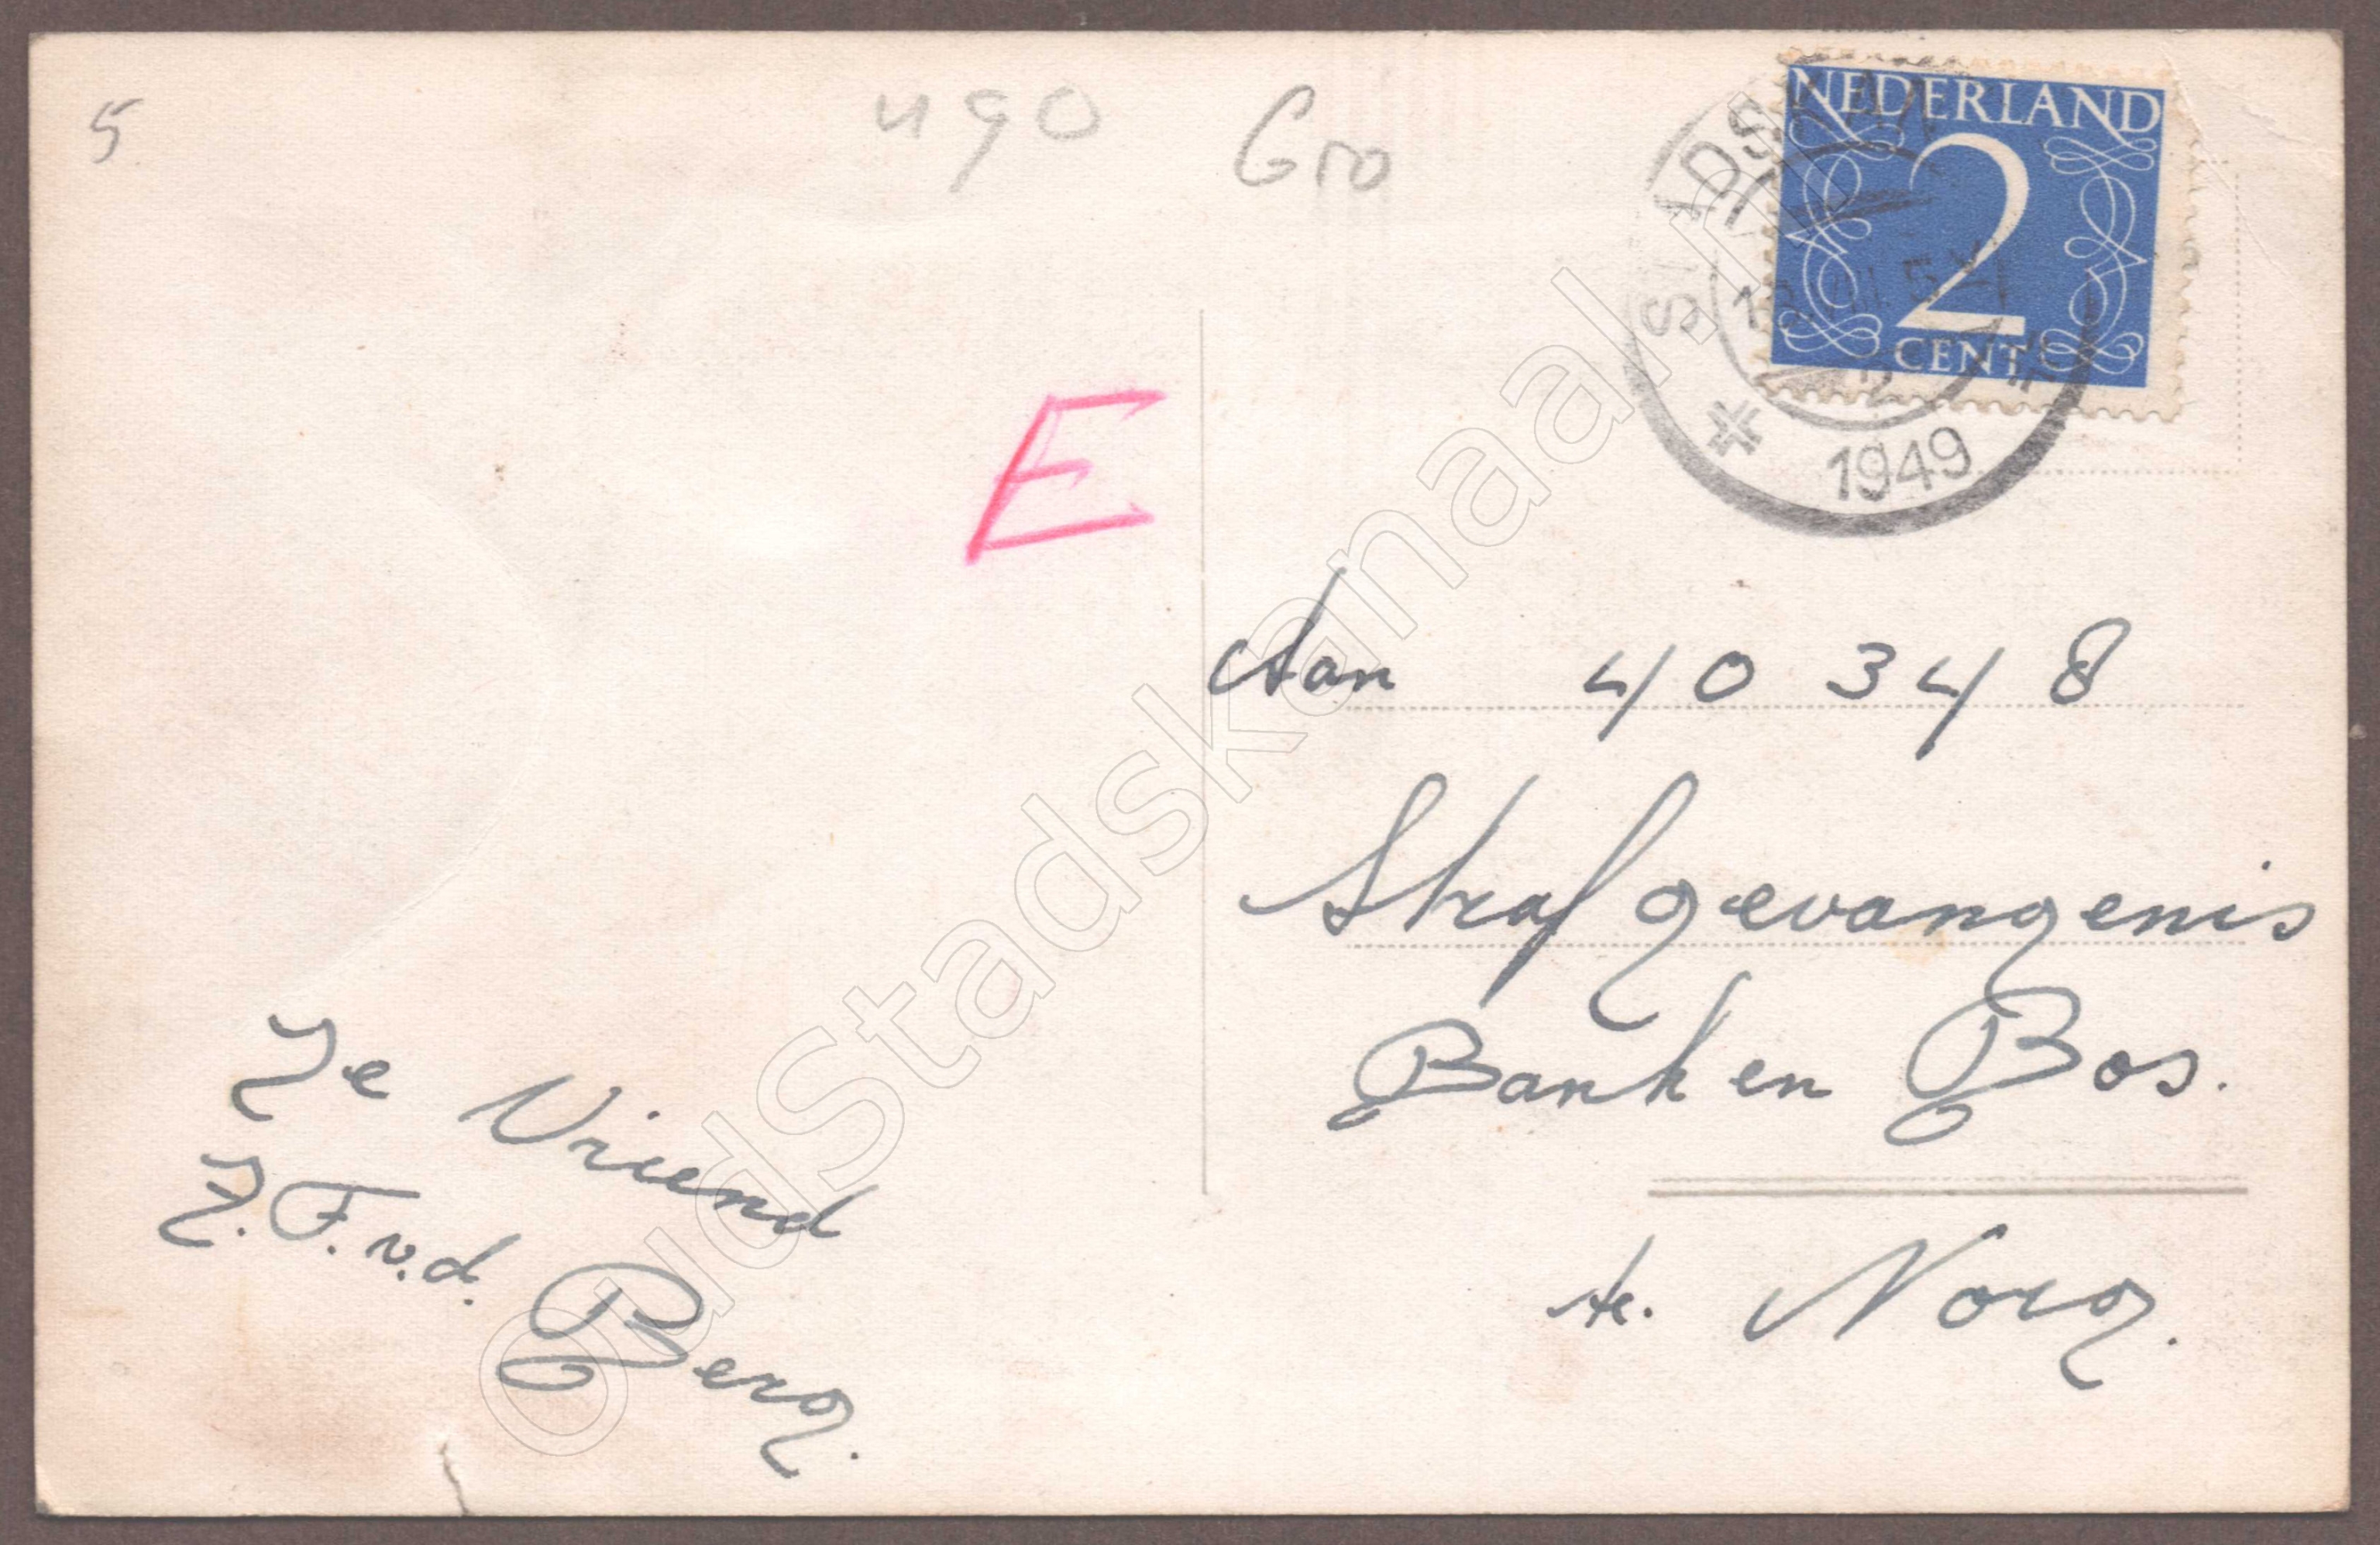 5
490 Gro
NEDERLAND
2
CENT
1949
E
Aan 40348
Strafgevangenis
Banken Bos.
te. Norg.
Je Vriend
J.F.v.d. Berg.
OudStadskanaal.nl